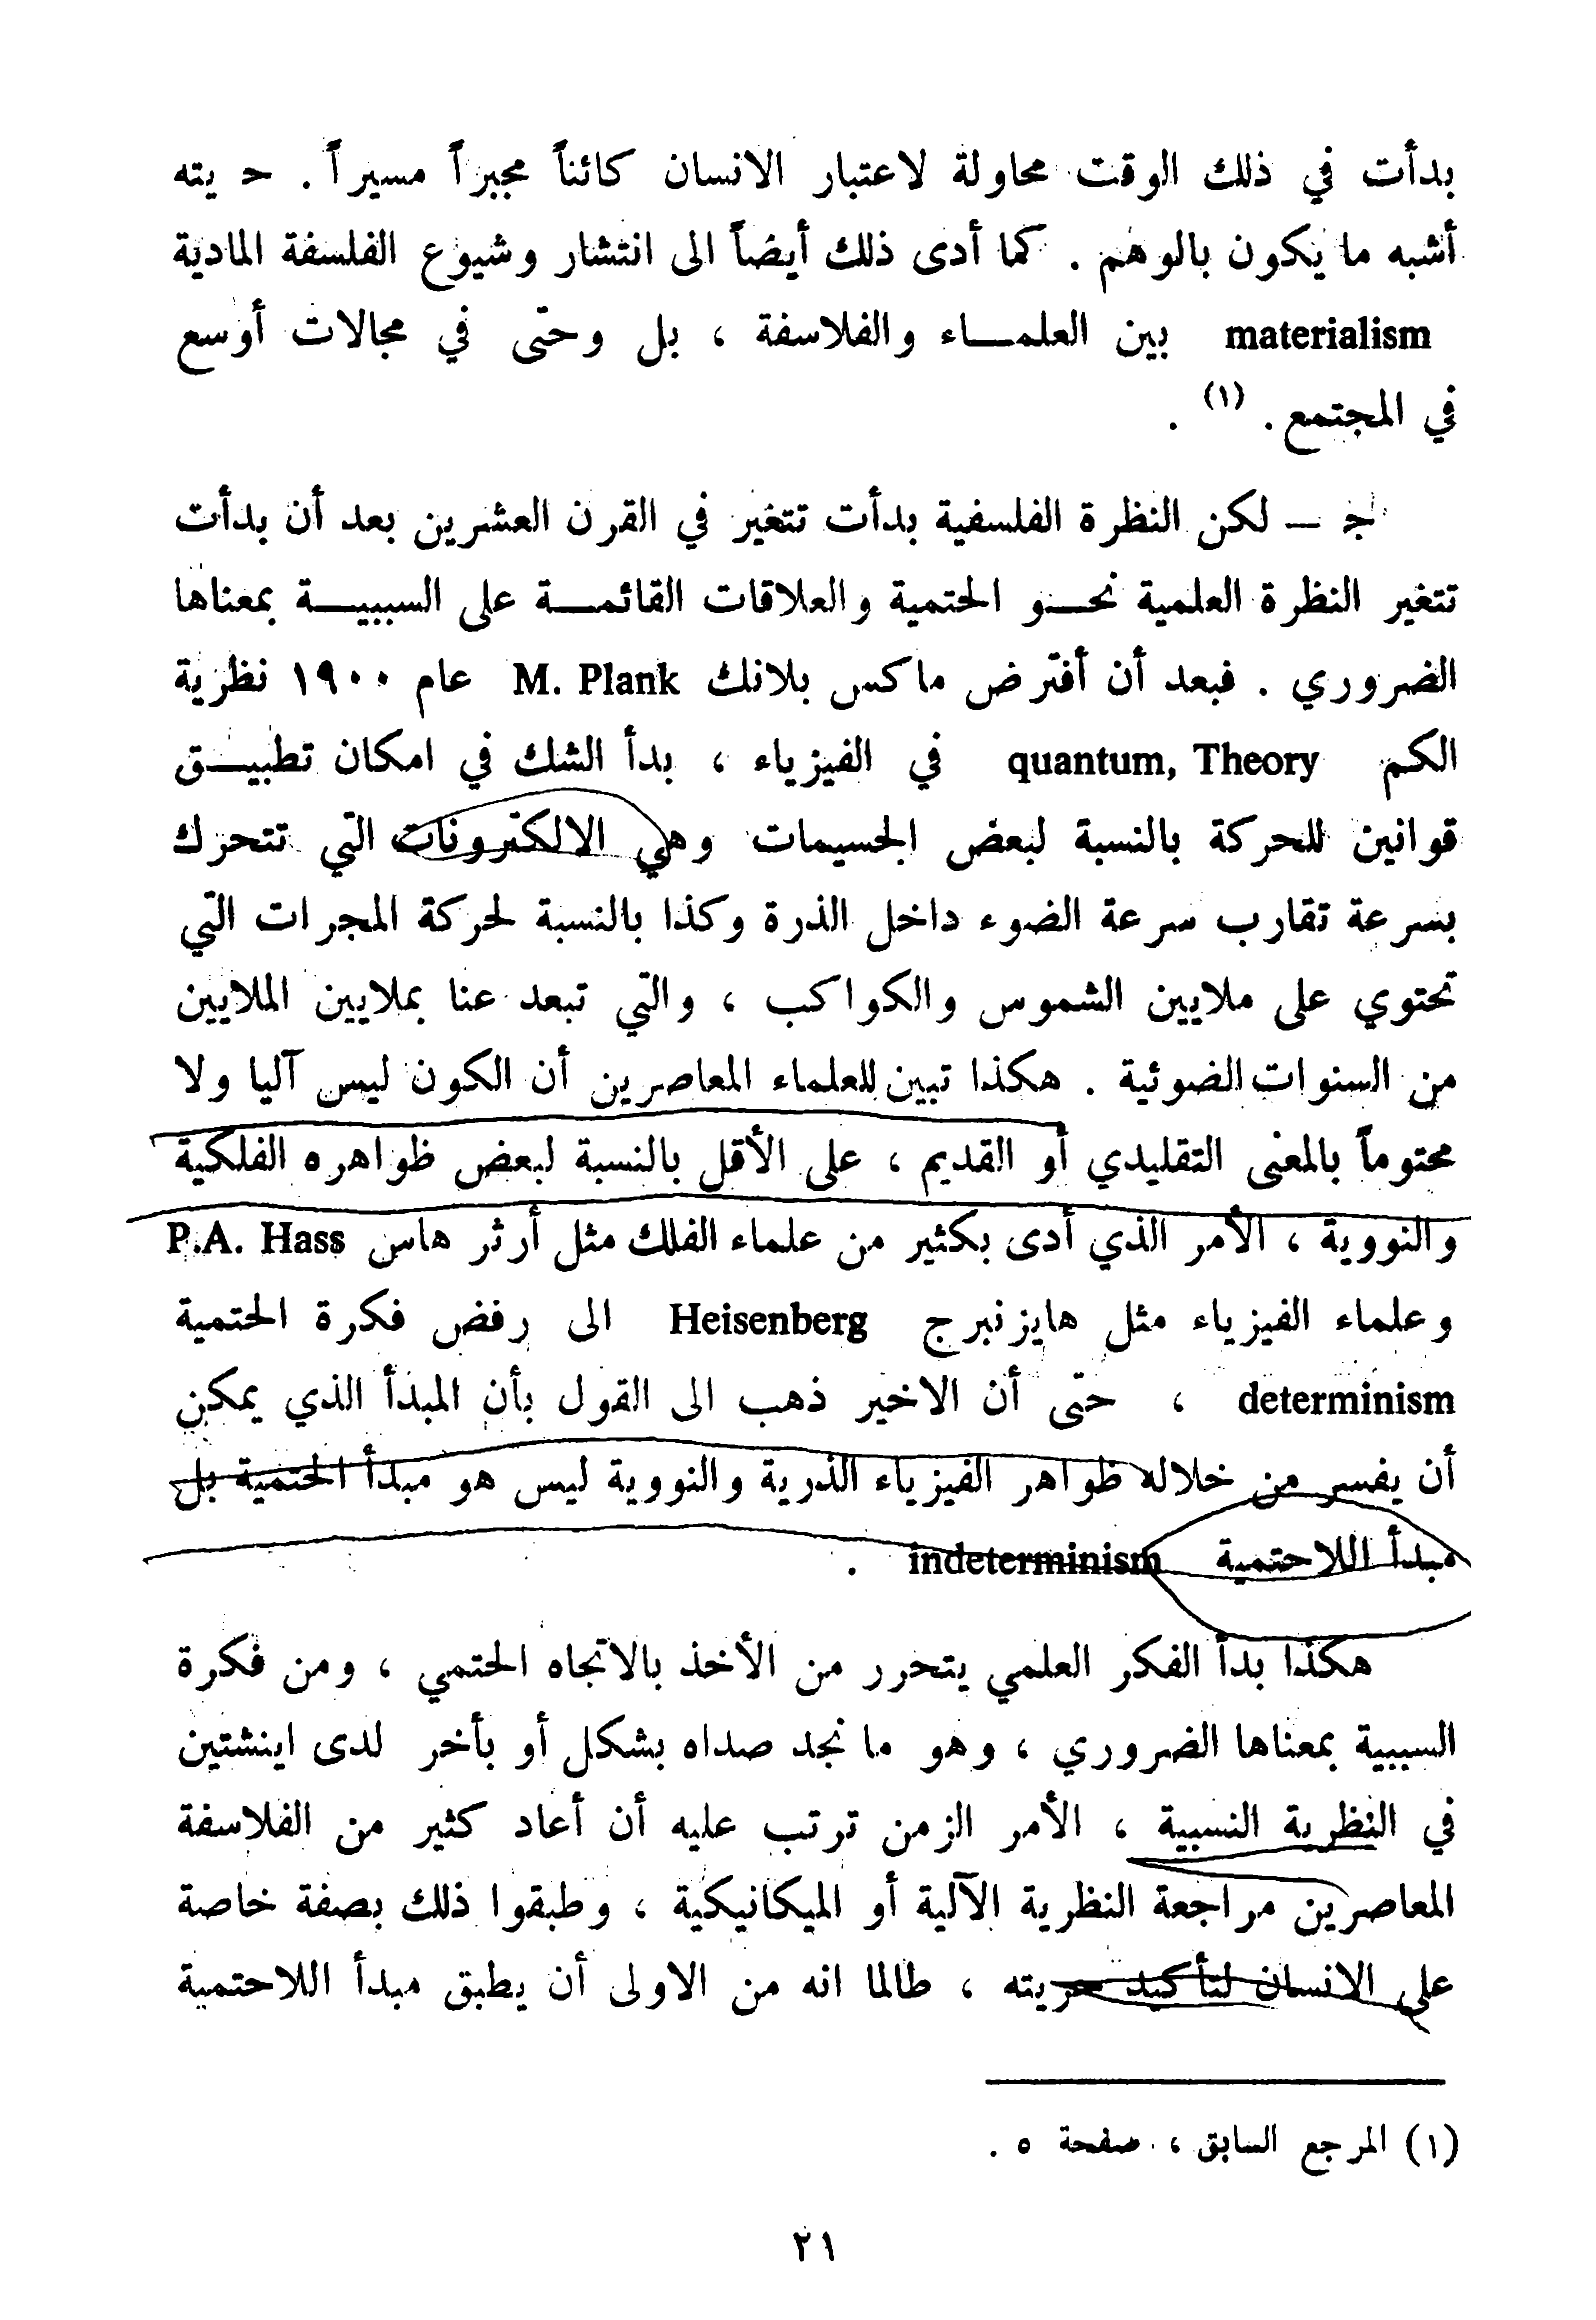 بدأت في ذلك الوقت محاولة لاعتبار الانسان كائناً مجبراً مسيراً . حـ يته
أشبه ما يكون بالوهم . كما أدى ذلك أيضاً الى انتشار وشيوع الفلسفة المادية
materialism بين العلمــاء والفلاسفة ، بل وحتى في مجالات أوسع
في المجتمع . (١) .
جـ ــ لكن النظرة الفلسفية بدأت تتغير في القرن العشرين بعد أن بدأت
تتغير النظرة العلمية نحــو الحتمية والعلاقات القائمــة على السببيــة بمعناها
الضروري . فبعد أن أفترض ماكس بلانك M. Plank عام ١٩٠٠ نظرية
الكم quantum, Theory في الفيزياء ، بدأ الشك في امكان تطبيــق
قوانين للحركة بالنسبة لبعض الجسيمات وهي الالكترونات التي تتحرك
بسرعة تقارب سرعة الضوء داخل الذرة وكذا بالنسبة لحركة المجرات التي
تحتوي على ملايين الشموس والكواكب ، والتي تبعد عنا بملايين الملايين
من السنوات الضوئية . هكذا تبين للعلماء المعاصرين أن الكون ليس آليا ولا
محتوماً بالمعنى التقليدي أو القديم ، على الأقل بالنسبة لبعض ظواهره الفلكية
والنووية ، الأمر الذي أدى بكثير من علماء الفلك مثل أرثر هاس P.A. Hass
وعلماء الفيزياء مثل هايزنبرج Heisenberg الى رفض فكرة الحتمية
determinism ، حتى أن الاخير ذهب الى القول بأن المبدأ الذي يمكن
أن يفسر من خلاله ظواهر الفيزياء الذرية والنووية ليس هو مبدأ الحتمية بل
مبدأ اللاحتمية indeterminism .
هكذا بدأ الفكر العلمي يتحرر من الأخذ بالاتجاه الحتمي ، ومن فكرة
السببية بمعناها الضروري ، وهو ما نجد صداه بشكل أو بأخر لدى اينشتين
في النظرية النسبية ، الأمر الزمن ترتب عليه أن أعاد كثير من الفلاسفة
المعاصرين مراجعة النظرية الآلية أو الميكانيكية ، وطبقوا ذلك بصفة خاصة
على الانسان لتأكيد حريته ، طالما انه من الاولى أن يطبق مبدأ اللاحتمية
(١) المرجع السابق ، صفحة ٥ .
٢١